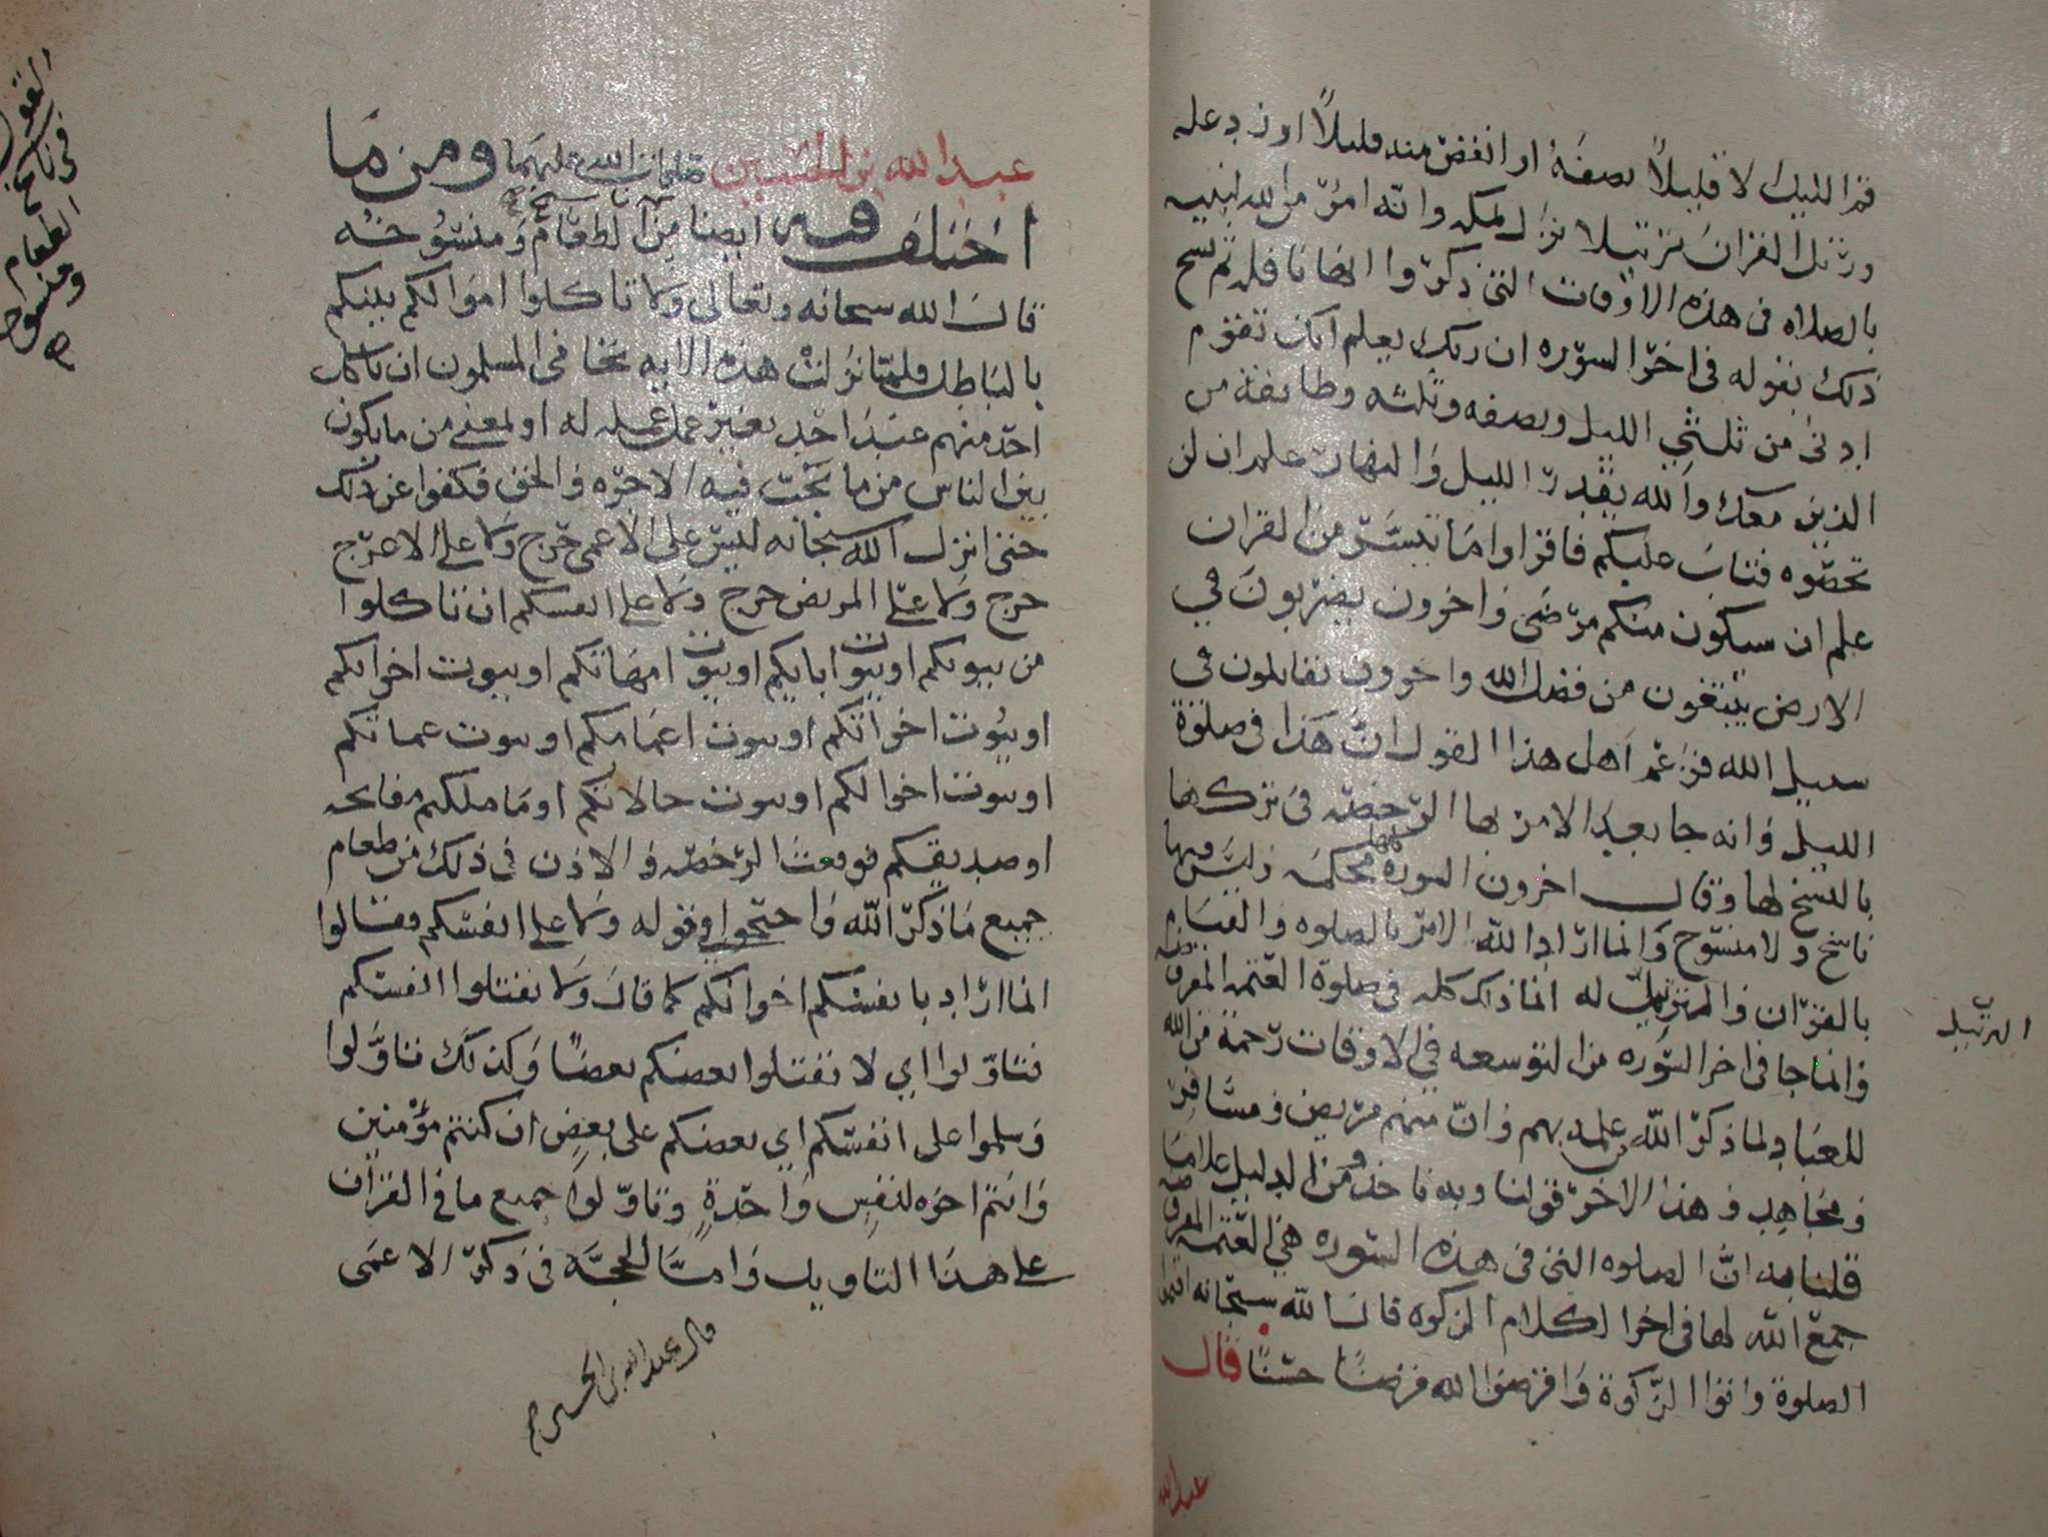 قم الليل الا قليلاً نصفه او انقص منه قليلاً او زد عليه
ورتل القران ترتيلا نزل بمكه وانه امر من الله لنبيه
بالصلاه في هذه الاوقات التي ذكر وا ايضا نافله ثم نسخ
ذلك بقوله في اخر السوره ان ربك يعلم انك تقوم
ادنى من ثلثي الليل ونصفه وثلثه وطائفة من
الذين معك والله يقدر الليل والنهار علم ان لن
تحصوه فتاب عليكم فاقراوا ما تيسر من القران
علم ان سيكون منكم مرضى واخرون يضربون في
الارض يبتغون من فضل الله واخرون يقاتلون في
سبيل الله فزعم اهل هذا القول ان هذا في صلوة
الليل وانه جا بعد الامر بها الرخصه في تركها
بالنسخ لها وقال اخرون السورة كلها محكمه وليس فيها
ناسخ ولا منسوخ وانما اراد الله الامر بالصلوه والقيام
بالقران والترتيل له انما ذلك كله في صلوة العتمه المفروضه
الترتيل
وانما جا في اخر السوره من التوسعه في الاوقات رحمة من الله
للعباد ولما ذكر الله من علمه بهم وان منهم مريض ومسافر
ومجاهد وهذا الاخر قولنا وبه ناخذ ومن الدليل على ما
قلنا به ان الصلوه التي في هذه السوره هي العتمه المفروضه
جمع الله لها في اخر الكلام الزكوه قال الله سبحانه اقيموا
الصلوة واتوا الزكوة واقرضوا الله قرضا حسنا قال
عبدالله
عبدالله بن الحسين صلوات الله عليهما ومن ما
اختلف فيه ايضا من آية الطعام ومنسوخه
القول في ناسخ الطعام ومنسوخه
قال الله سبحانه وتعالى ولا تاكلوا اموالكم بينكم
بالباطل فلما نزلت هذه الايه تخافى المسلمون ان ياكل
احد منهم عند احد بغير عمل عمله له او لمعنى من ما يكون
بين الناس من ما تجب فيه الاجره والحق فكفوا عن ذلك
حتى انزل الله سبحانه ليس على الاعمى حرج ولا على الاعرج
حرج ولا على المريض حرج ولا على انفسكم ان تاكلوا
من بيوتكم او بيوت ابايكم او بيوت امهاتكم او بيوت اخوانكم
او بيوت اخواتكم او بيوت اعمامكم او بيوت عماتكم
او بيوت اخوالكم او بيوت خالاتكم او ما ملكتم مفاتحه
او صديقكم فوقعت الرخصه والاذن في ذلك من طعام
جميع ما ذكر الله واحتجوا في قوله ولا على انفسكم فقالوا
انما اراد بانفسكم اخوانكم كما قال ولا تقتلوا انفسكم
فتاولوا اي لا تقتلوا بعضكم بعضاً وكذلك تاولوا
وسلموا على انفسكم اي بعضكم على بعض ان كنتم مؤمنين
وانتم اخوه لنفس واحدة وتاولوا جميع ما في القران
على هذا التاويل واما الحجه في ذكر الاعمى
قال عبدالله بن الحسين